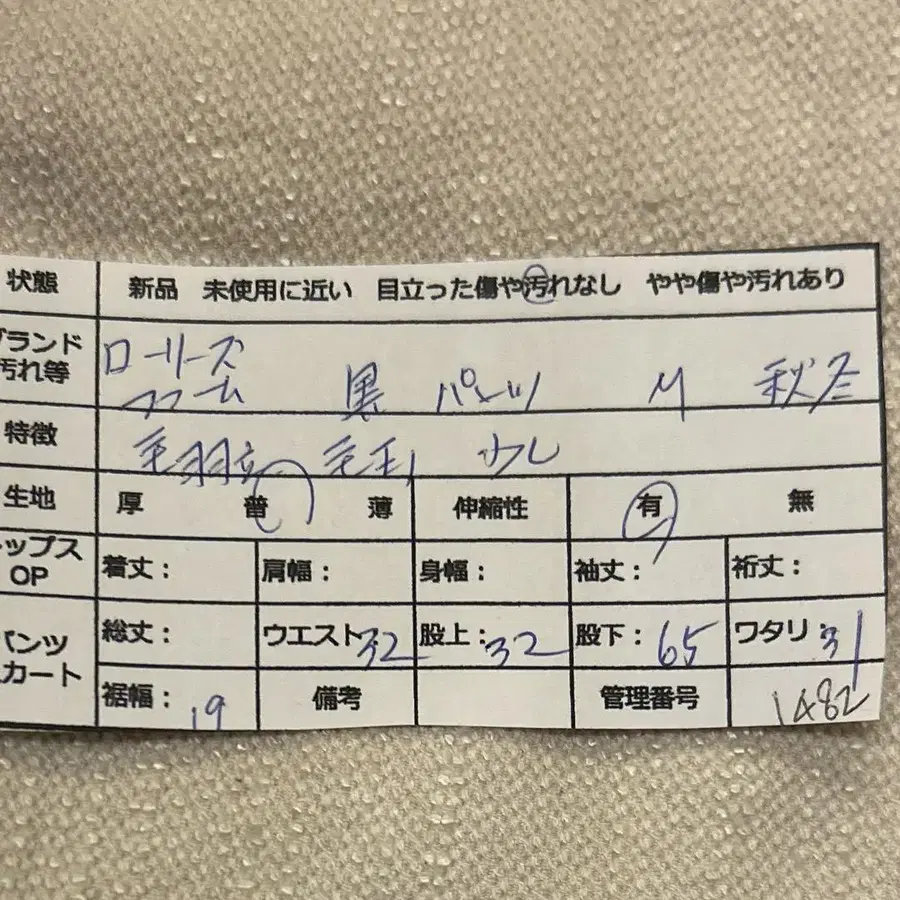 状態 新品 未使用に近い 目立った傷や汚れなし やや傷や汚れあり
ブランド ローリーズ
汚れ等 ファーム 黒 パンツ M 秋冬
特徴 毛羽立 毛玉 少し
生地 厚 普 薄 伸縮性 有 無
ップス
OP 着丈： 肩幅： 身幅： 袖丈： 裄丈：
パンツ 総丈： ウエスト32 股上：32 股下：65 ワタリ：31
カート
裾幅：19 備考 管理番号 1482